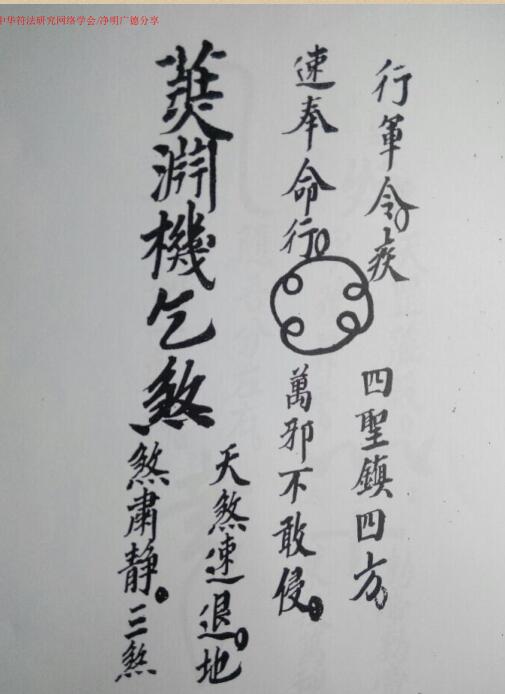 中华符法研究网络学会/净明广德分享
行軍令疾 四聖鎮四方。
速奉命行。 萬邪不敢侵。
淵機乞煞
天煞速退。地
煞肅静。三煞